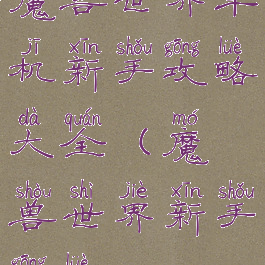 魔兽世界单
jī xīn shǒu gōng lüè
机新手攻略
dà quán mó
大全(魔
shòu shì jiè xīn shǒu
兽世界新手
gōng lüè